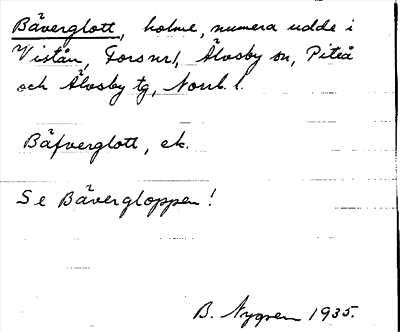 Bäverglott, holme, numera udde i
Vistån, Fors nr 1, Älvsby sn, Piteå
och Älvsby tg, Norrb. l.
Bäfverglott, ek.
Se Bävergloppen!
B. Nygren 1935.